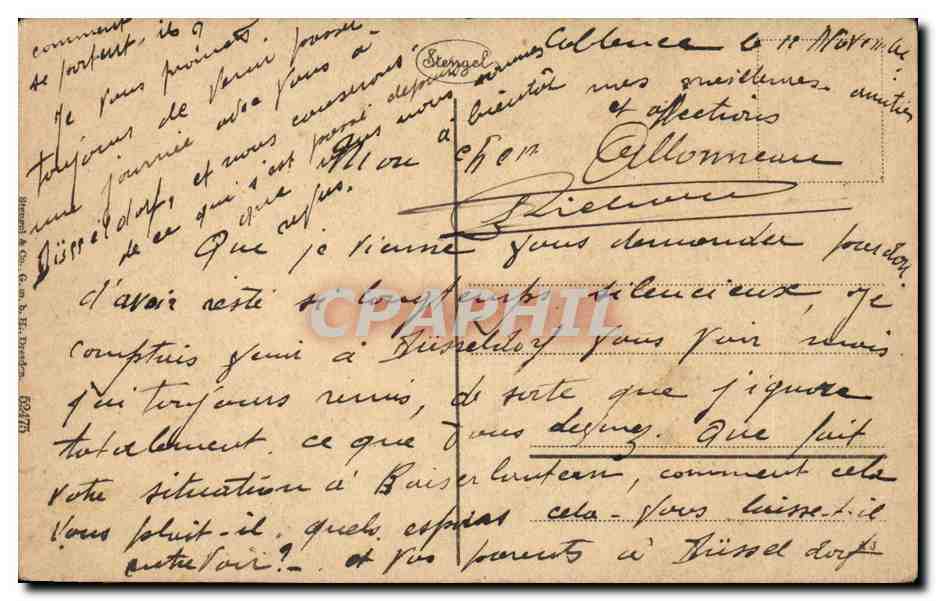 Coblence le 11 Novembre
Mon cher Allonneau
Que je vienne vous demander pardon
d'avoir resté si longtemps silencieux, je
comptais venir à Düsseldorf vous voir mais
j'ai toujours remis, de sorte que j'ignore
totalement ce que vous devenez. Que fait
votre situation à Kaiserlautern, comment cela
vous plait-il, quels espoirs cela vous laisse-t-il
entrevoir? et vos parents à Düsseldorf
comment
se portent, ils ?
Je vous promets
toujours de venir passer
une journée avec vous à
Düsseldorf, et nous causerons
de ce qui s'est passé depuis
que nous nous sommes
à bientôt mes meilleures amitiés
et affections
Stengel
Stengel & Co., G. m. b. H., Dresden 52475
CPAPHIL